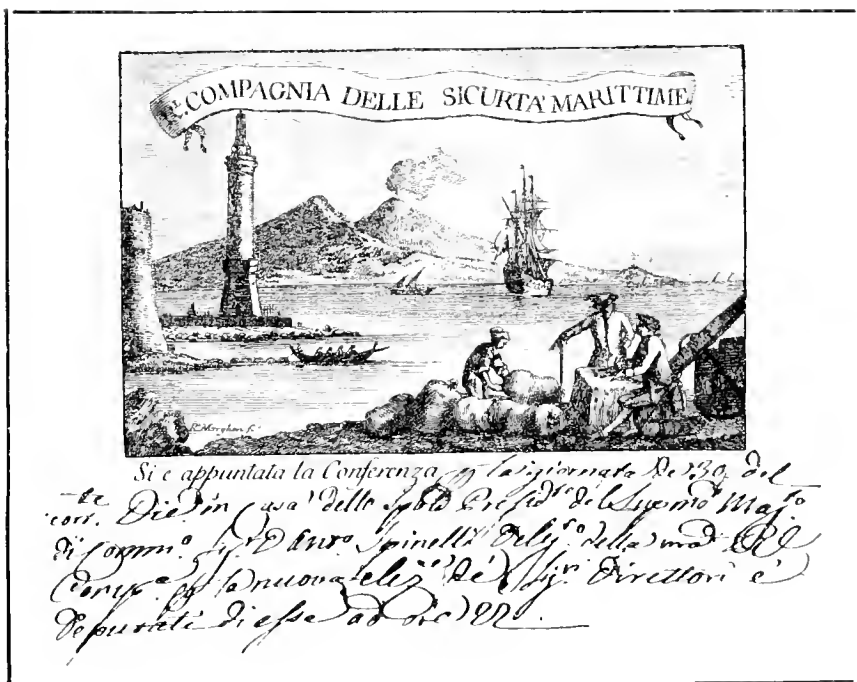 Rl. COMPAGNIA DELLE SICURTA' MARITTIME
R. Morghen f.
Si e appuntata la Conferenza p la giornata de 30 del
corr.te in Casa dello Presid.te del Supmo Mag.to
di Comm.o Sig.r D Ant.o Spinelli Deleg.to della Rl
Comp.a p la nuova elez.e de Sig.ri Direttori é
Deputati di essa ad ore 22